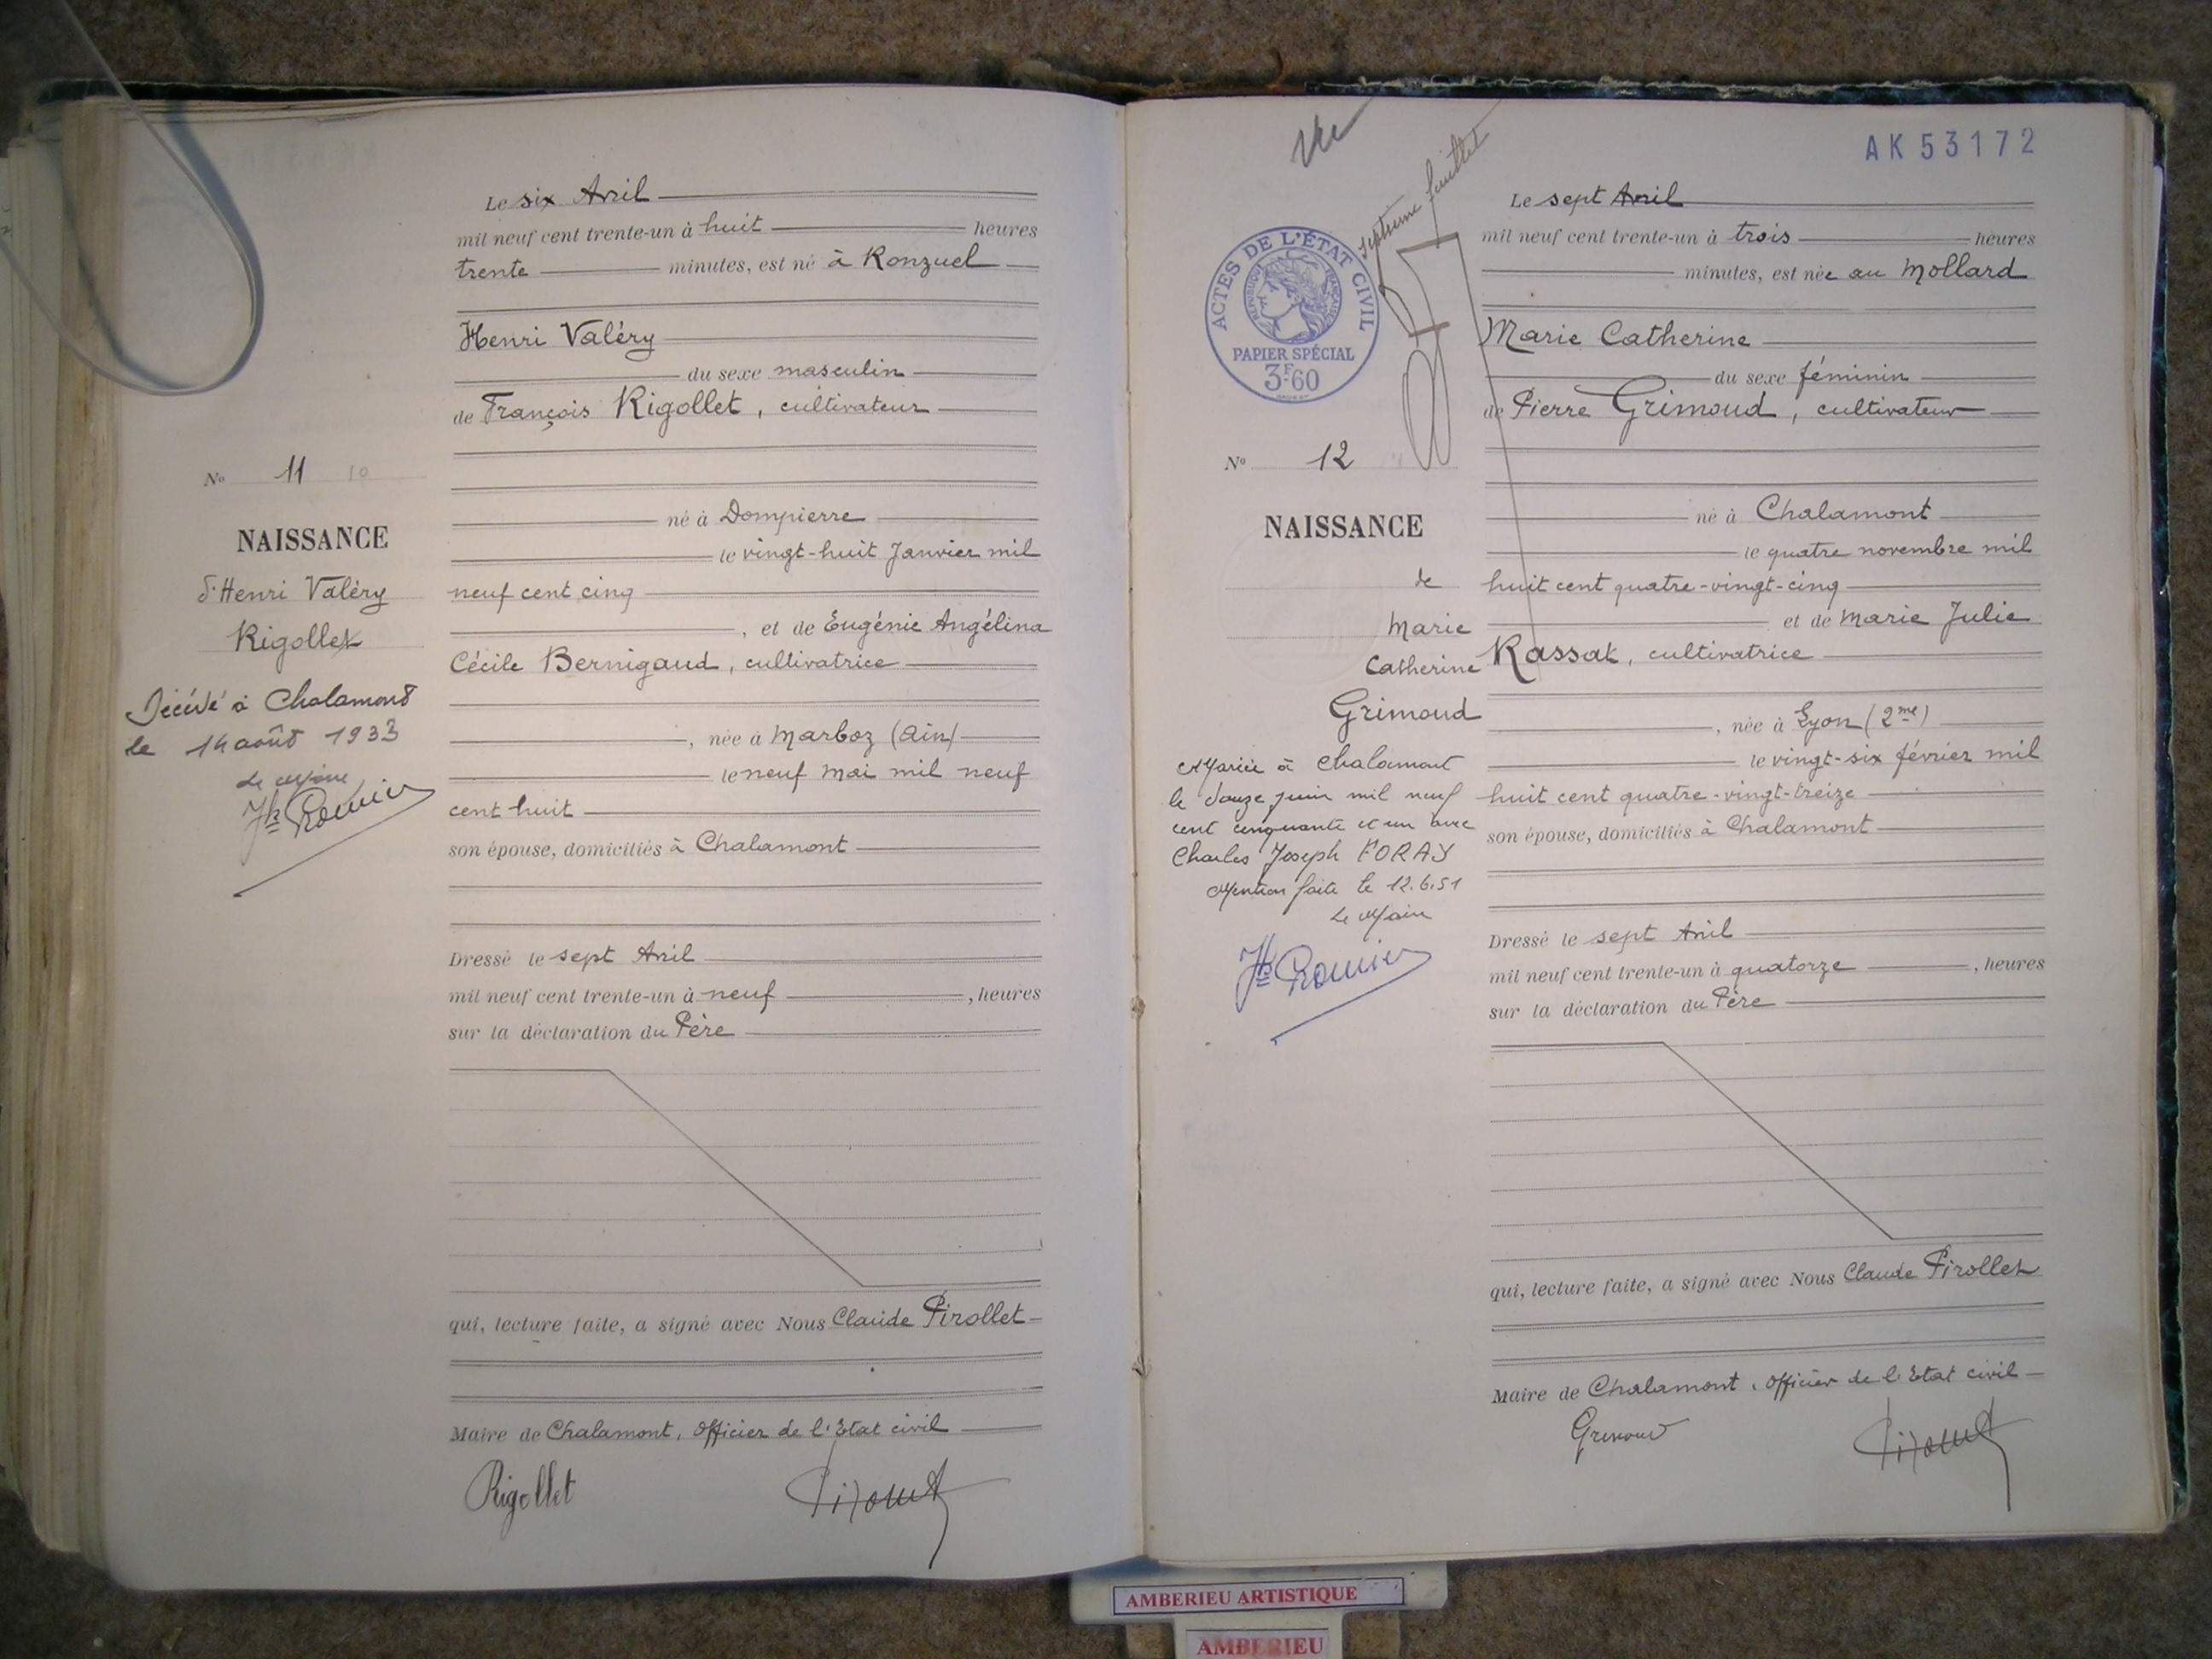 Le six Avril
mil neuf cent trente-un à huit heures
trente minutes, est né à Ronzuel
Henri Valéry
du sexe masculin
de François Rigollet, cultivateur
né à Dompierre
le vingt-huit Janvier mil
neuf cent cinq
, et de Eugénie Angélina
Cécile Bernigaud, cultivatrice
, née à Marboz (Ain)
le neuf mai mil neuf
cent huit
son épouse, domiciliés à Chalamont
Dressé le sept Avril
mil neuf cent trente-un à neuf , heures
sur la déclaration du Père
qui, lecture faite, a signé avec Nous Claude Pirollet
Maire de Chalamont, Officier de l'Etat civil
Rigollet
Nº 11 10
NAISSANCE
d'Henri Valéry
Rigollet
Décédé à Chalamont
le 14 août 1933
Le Maire
AK 53172
Vu
septième feuillet
7
ACTES DE L'ÉTAT CIVIL
RÉPUBLIQUE FRANÇAISE
PAPIER SPÉCIAL
3F60
Nº 12
NAISSANCE
de
Marie
Catherine
Grimoud
Mariée à Chalamont
le douze juin mil neuf
cent cinquante et un avec
Charles Joseph FORAY
Mention faite le 12.6.51
Le Maire
Le sept Avril
mil neuf cent trente-un à trois heures
minutes, est née au Mollard
Marie Catherine
du sexe féminin
de Pierre Grimoud, cultivateur
né à Chalamont
le quatre novembre mil
huit cent quatre-vingt-cinq
et de Marie Julie
Rassat, cultivatrice
, née à Lyon (2me)
le vingt-six février mil
huit cent quatre-vingt-treize
son épouse, domiciliés à Chalamont
Dressé le sept Avril
mil neuf cent trente-un à quatorze , heures
sur la déclaration du Père
qui, lecture faite, a signé avec Nous Claude Pirollet
Maire de Chalamont, Officier de l'Etat civil
Grimoud
AMBERIEU ARTISTIQUE
AMBERIEU